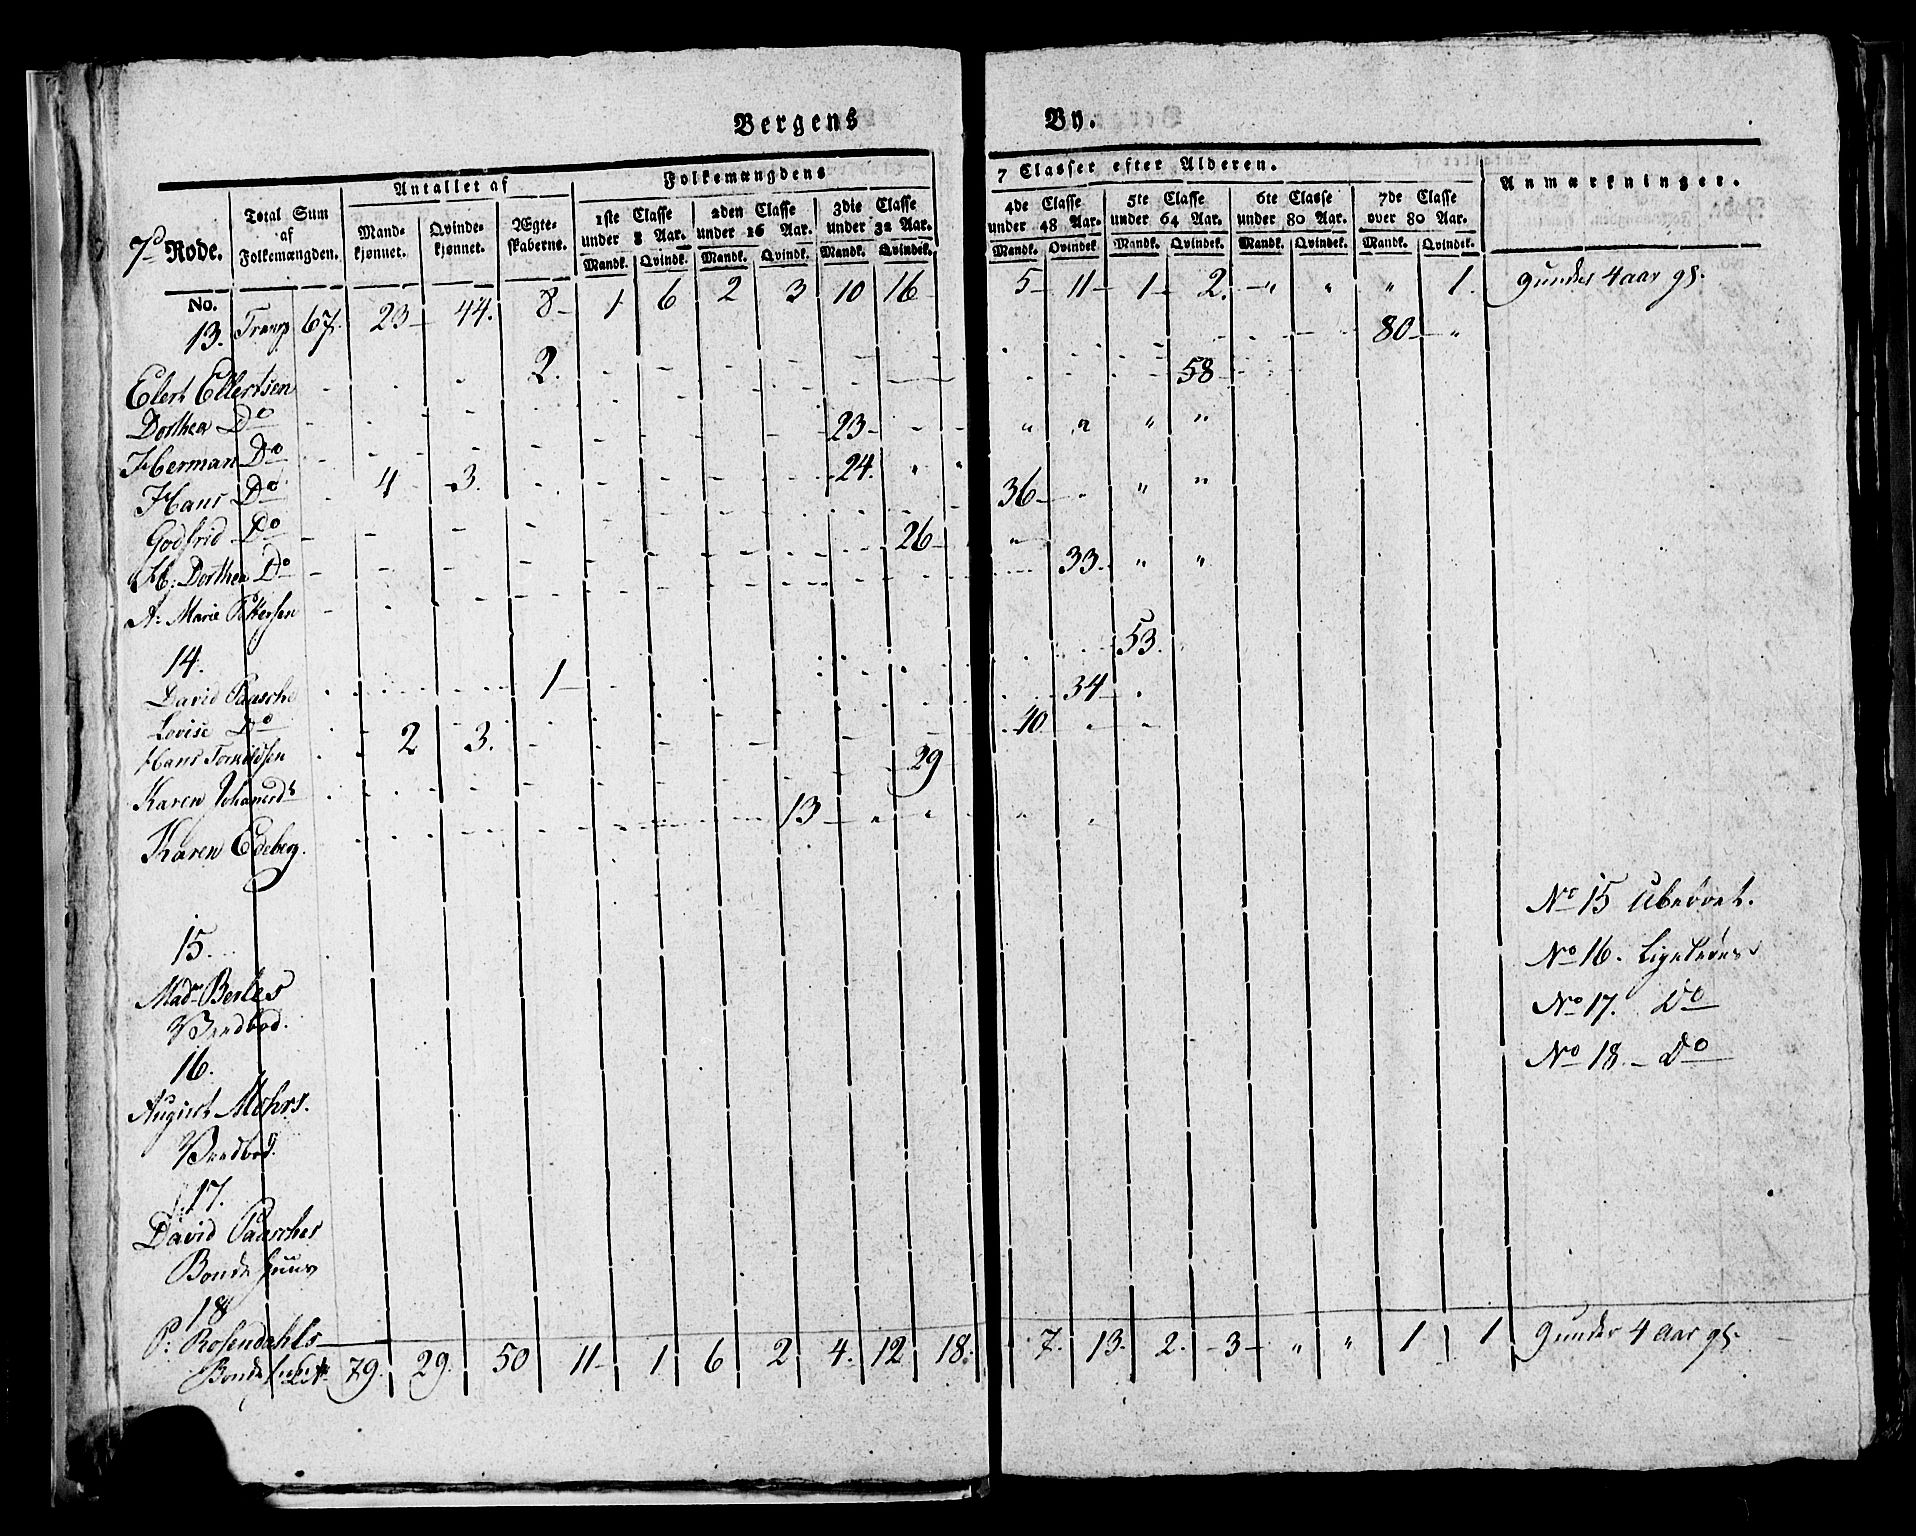 Bergens By.
7d Rode.
Total Sum af Folkemængden.
Antallet af
Mandkjønnet. Qvindekjønnet. Ægteskaberne.
Folkemængdens 7 Classer efter Alderen.
1ste Classe under 8 Aar. 2den Classe under 16 Aar. 3die Classe under 32 Aar. 4de Classe under 48 Aar. 5te Classe under 64 Aar. 6te Classe under 80 Aar. 7de Classe over 80 Aar.
Mandk. Qvindk. Mandk. Qvindk. Mandk. Qvindek. Mandk. Qvindek. Mandk. Qvindek. Mandk. Qvindek. Mandk. Qvindek.
Anmærkninger.
No.
13. Transp 67. 23 44. 8 1 6 2 3 10 16 5 11 1 2. " " " 1. 9 under 4 aar gl.
Elert Ellertsen 2. 80 "
Dorthea Do 58
Herman Do 23 " " " "
Hans Do 4 3. 24. " " 36 " " "
Godfrid Do 36
H. Dorthea Do 26 "
A. Marie Pettersen 33. " "
14.
David Paasche 1 53.
Lovise Do 34
Hans Tomildsen 2 3. 40
Karen Johannesd. 29
Karen Edeberg. 13 " " " "
15.
Madm Berles
Vandbod.
16.
August Mohrs.
Vandbod.
17.
David Paasches
Bondehuus
18
P. Rosendahls
Bondehuus 79. 29. 50 11 1 6 2 4. 12 18. 7. 13. 2. 3 " " 1 1 9 under 4 Aar gl.
No 15 Uboeet.
No 16. Ligeledes
No 17. Do
No 18. Do